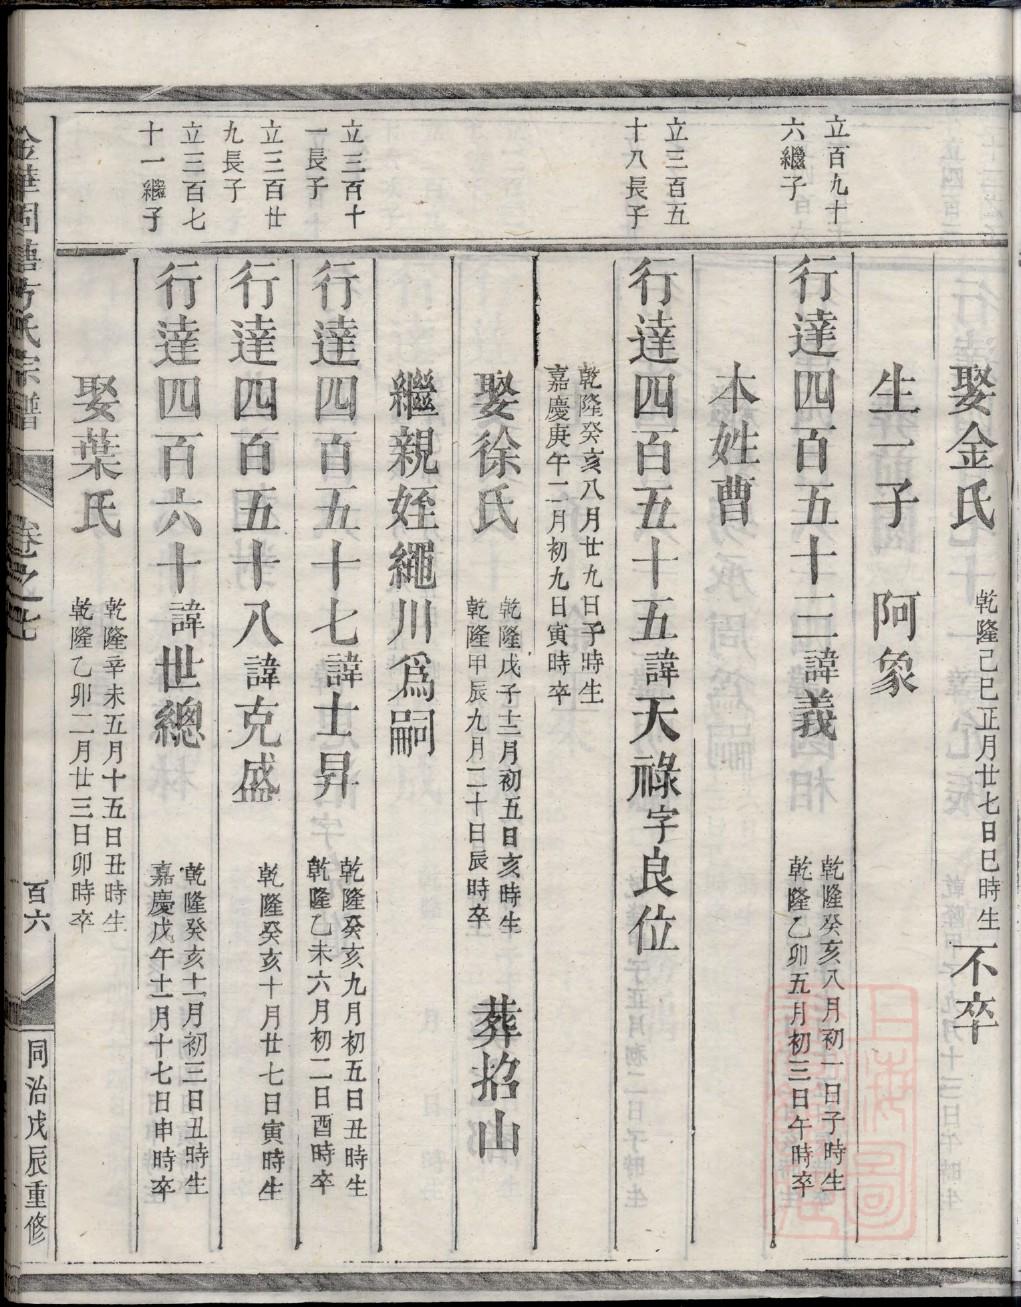 娶金氏
乾隆己巳正月廿七日巳時生
不卒
生一子 阿象
立百九十
六繼子
行達四百五十三諱義
乾隆癸亥八月初一日子時生
乾隆乙卯五月初三日午時卒
本姓曹
立三百五
十八長子
行達四百五十五諱天祿字良位
乾隆癸亥八月廿九日子時生
嘉慶庚午二月初九日寅時卒
娶徐氏
乾隆戊子十二月初五日亥時生
乾隆甲辰九月二十日辰時卒
葬招山
繼親姪繩川爲嗣
立三百十
一長子
行達四百五十七諱士昇
乾隆癸亥九月初五日丑時生
乾隆乙未六月初二日酉時卒
立三百廿
九長子
行達四百五十八諱克盛
乾隆癸亥十月廿七日寅時生
立三百七
十一繼子
行達四百六十諱世總
乾隆癸亥十一月初三日丑時生
嘉慶戊午十一月十七日申時卒
娶葉氏
乾隆辛未五月十五日丑時生
乾隆乙卯二月廿三日卯時卒
方氏宗譜
卷之
百六
同治戊辰重修